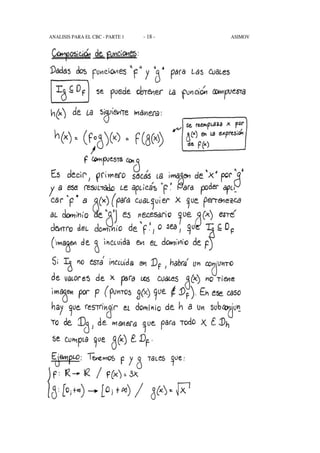 ANALISIS PARA EL CBC - PARTE 1 - 18 - ASIMOV
Composición de funciones:
Dadas dos funciones "f" y "g" para las cuales
Ig ⊆ Df se puede obtener la función compuesta
h(x) de la siguiente manera:
se reemplaza x por
g(x) en la expresión
de f(x)
h(x) = (fog)(x) = f(g(x))
f compuesta con g
Es decir, primero sacás la imagen de "x" por "g"
y a ese resultado le aplicás "f". Para poder apli
car "f" a g(x) (para cualquier x que pertenezca
al dominio de "g") es necesario que g(x) esté
dentro del dominio de "f", o sea, que Ig ⊆ Df
(imagen de g incluida en el dominio de f)
Si Ig no está incluida en Df, habrá un conjunto
de valores de x para los cuales g(x) no tiene
imagen por f (puntos g(x) que ∉ Df). En ese caso
hay que restringir el dominio de h a un subconjun
to de Dg, de manera que para todo x ∈ Dh
se cumpla que g(x) ∈ Df.
Ejemplo: Tenemos f y g tales que:
f: R → R / f(x) = 3x
g: [0;+∞) → [0;+∞) / g(x) = √x